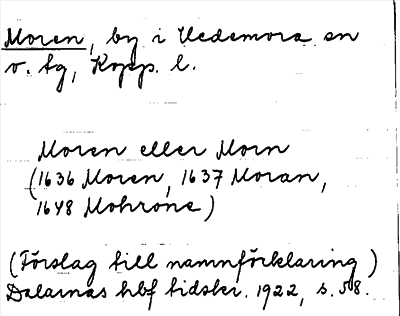 Moren, by i Hedemora sn
v. tg, Kopp. l.
Moren eller Morn
(1636 Moren, 1637 Moran,
1648 Mohrone)
(Förslag till namnförklaring)
Dalarnas hbf tidskr. 1922, s. 58.